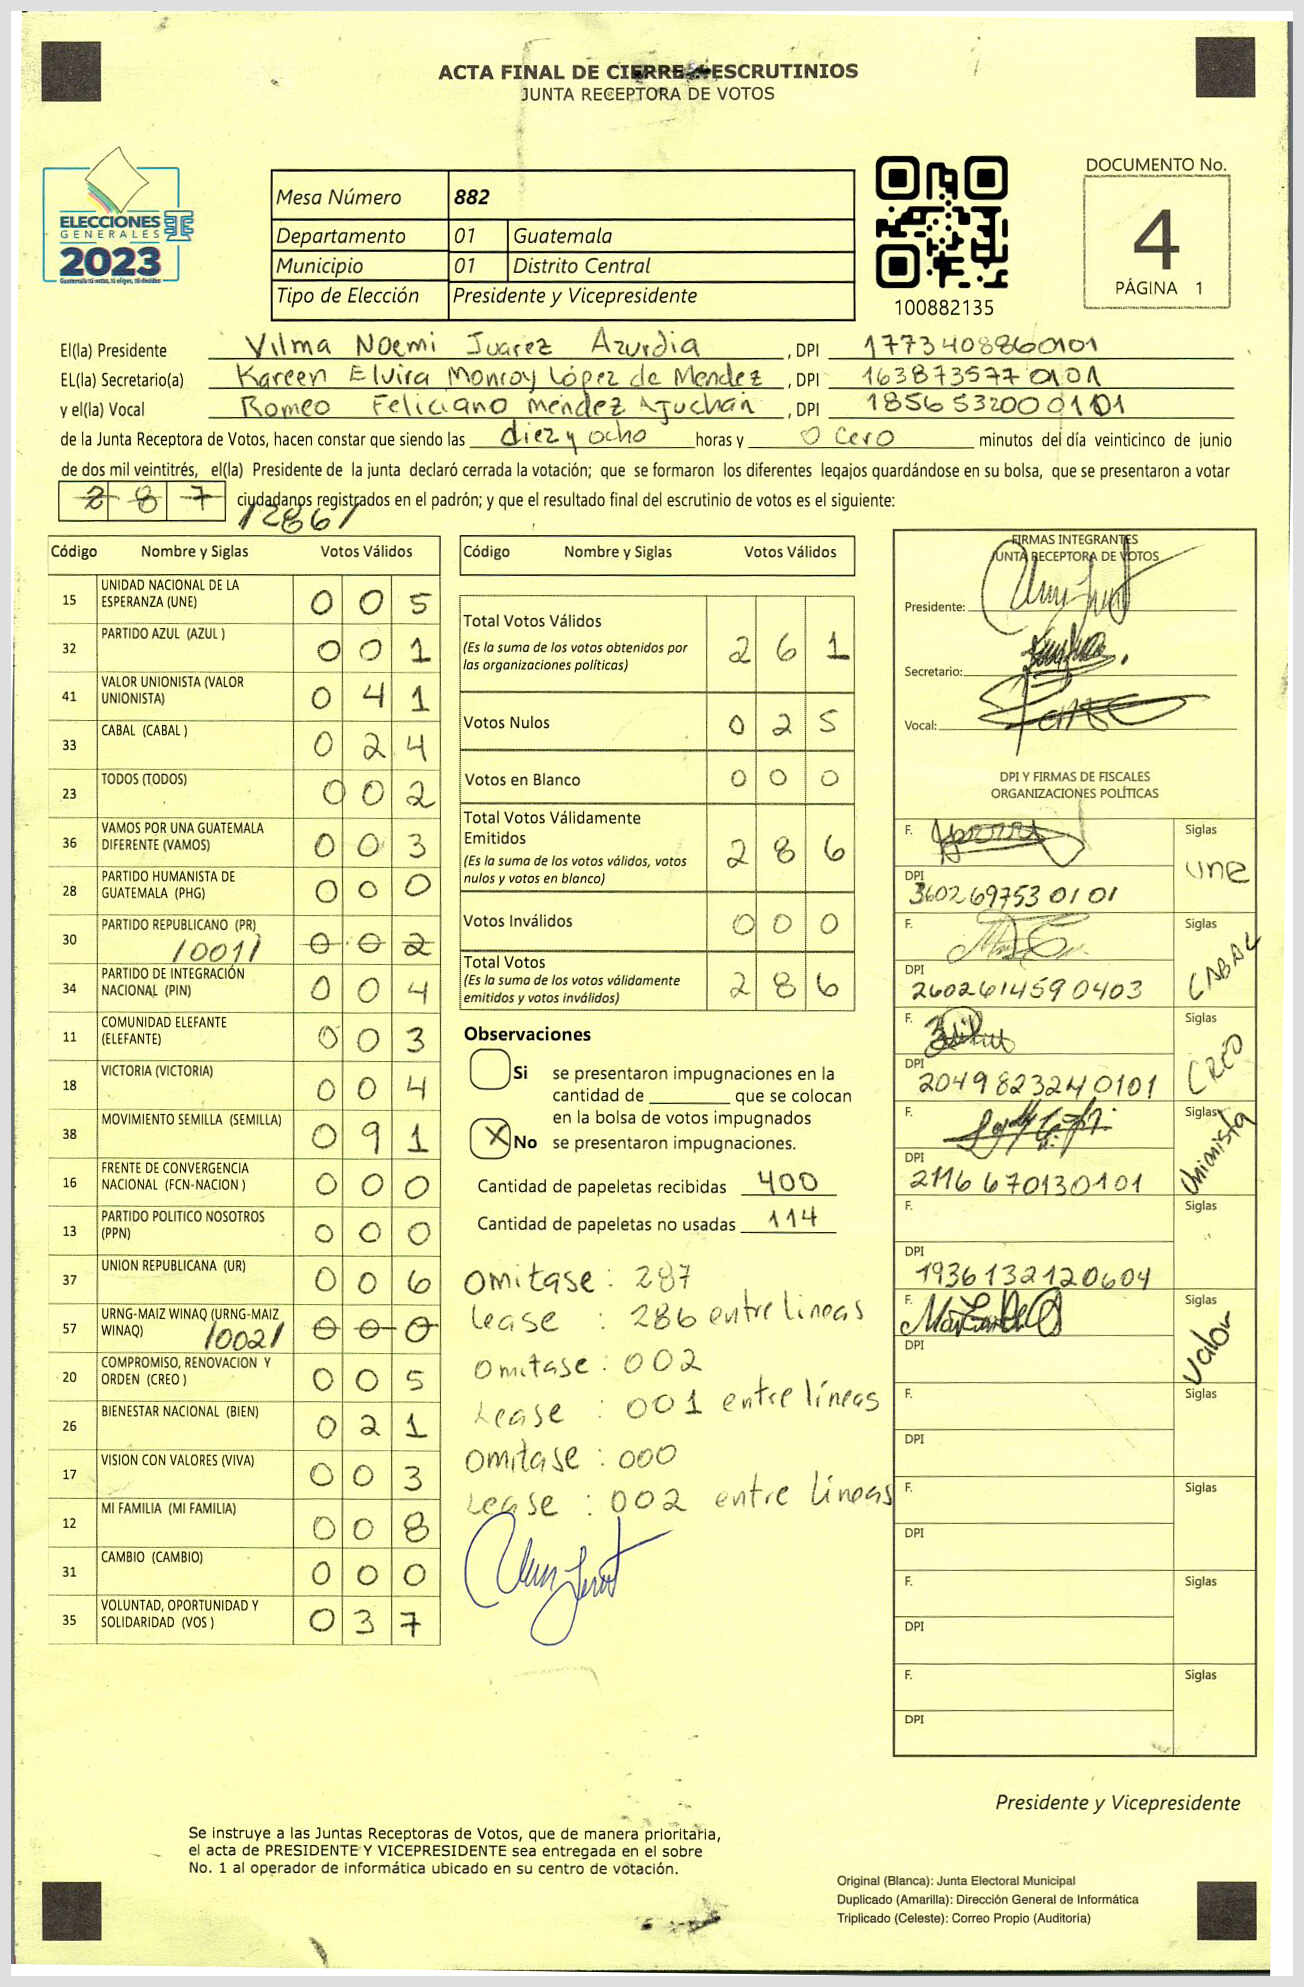 ACTA FINAL DE CIERRE ESCRUTINIOS
JUNTA RECEPTORA DE VOTOS
ELECCIONES
GENERALES
2023
Mesa Número 882
Departamento 01 Guatemala
Municipio 01 Distrito Central
Tipo de Elección Presidente y Vicepresidente
100882135
DOCUMENTO No.
4
PÁGINA 1
El(la) Presidente Vilma Noemi Juarez Azurdia , DPI 1773408860101
EL(la) Secretario(a) Kareen Elvira Monroy López de Mendez , DPI 1638735770101
y el(la) Vocal Romeo Feliciano Méndez Ajuchán , DPI 1856532000101
de la Junta Receptora de Votos, hacen constar que siendo las diez y ocho horas y 0 cero minutos del día veinticinco de junio
de dos mil veintitrés, el(la) Presidente de la junta declaró cerrada la votación; que se formaron los diferentes legajos guardándose en su bolsa, que se presentaron a votar
287 ciudadanos registrados en el padrón; y que el resultado final del escrutinio de votos es el siguiente:
/286/
Código Nombre y Siglas Votos Válidos
15 UNIDAD NACIONAL DE LA ESPERANZA (UNE) 0 0 5
32 PARTIDO AZUL (AZUL ) 0 0 1
41 VALOR UNIONISTA (VALOR UNIONISTA) 0 4 1
33 CABAL (CABAL ) 0 2 4
23 TODOS (TODOS) 0 0 2
36 VAMOS POR UNA GUATEMALA DIFERENTE (VAMOS) 0 0 3
28 PARTIDO HUMANISTA DE GUATEMALA (PHG) 0 0 0
30 PARTIDO REPUBLICANO (PR) /001/ 0 0 2
34 PARTIDO DE INTEGRACIÓN NACIONAL (PIN) 0 0 4
11 COMUNIDAD ELEFANTE (ELEFANTE) 0 0 3
18 VICTORIA (VICTORIA) 0 0 4
38 MOVIMIENTO SEMILLA (SEMILLA) 0 9 1
16 FRENTE DE CONVERGENCIA NACIONAL (FCN-NACION ) 0 0 0
13 PARTIDO POLITICO NOSOTROS (PPN) 0 0 0
37 UNION REPUBLICANA (UR) 0 0 6
57 URNG-MAIZ WINAQ (URNG-MAIZ WINAQ) /002/ 0 0 0
20 COMPROMISO, RENOVACION Y ORDEN (CREO ) 0 0 5
26 BIENESTAR NACIONAL (BIEN) 0 2 1
17 VISION CON VALORES (VIVA) 0 0 3
12 MI FAMILIA (MI FAMILIA) 0 0 8
31 CAMBIO (CAMBIO) 0 0 0
35 VOLUNTAD, OPORTUNIDAD Y SOLIDARIDAD (VOS ) 0 3 7
Código Nombre y Siglas Votos Válidos
Total Votos Válidos 2 6 1
(Es la suma de los votos obtenidos por
las organizaciones políticas)
Votos Nulos 0 2 5
Votos en Blanco 0 0 0
Total Votos Válidamente
Emitidos 2 8 6
(Es la suma de los votos válidos, votos
nulos y votos en blanco)
Votos Inválidos 0 0 0
Total Votos 2 8 6
(Es la suma de los votos válidamente
emitidos y votos inválidos)
Observaciones
Si se presentaron impugnaciones en la
cantidad de ________ que se colocan
en la bolsa de votos impugnados
X No se presentaron impugnaciones.
Cantidad de papeletas recibidas 400
Cantidad de papeletas no usadas 114
Omitase : 287
Lease : 286 entre lineas
Omitase : 002
Lease : 001 entre líneas
Omitase : 000
Lease : 002 entre líneas
FIRMAS INTEGRANTES
JUNTA RECEPTORA DE VOTOS
Presidente:
Secretario:
Vocal:
DPI Y FIRMAS DE FISCALES
ORGANIZACIONES POLÍTICAS
F. Siglas
DPI 3602697530101 une
F. Siglas
DPI 2602614590403 CABAL
F. Siglas
DPI 2049823240101 CREO
F. Siglas
DPI 2116670130101 Unionista
F. Siglas
DPI 1936132120604
F. Siglas
DPI Valor
F. Siglas
DPI
F. Siglas
DPI
F. Siglas
DPI
F. Siglas
DPI
Presidente y Vicepresidente
Se instruye a las Juntas Receptoras de Votos, que de manera prioritaria,
el acta de PRESIDENTE Y VICEPRESIDENTE sea entregada en el sobre
No. 1 al operador de informática ubicado en su centro de votación.
Original (Blanca): Junta Electoral Municipal
Duplicado (Amarilla): Dirección General de Informática
Triplicado (Celeste): Correo Propio (Auditoría)